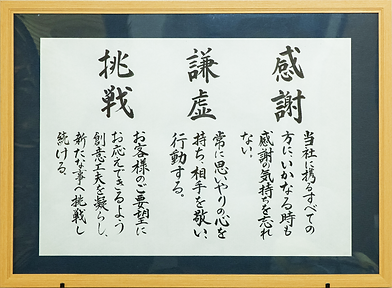 感謝
当社に携るすべての
方に、いかなる時も
感謝の気持ちを忘れ
ない。
謙虚
常に思いやりの心を
持ち、相手を敬い、
行動する。
挑戦
お客様のご要望に
お応えできるよう
創意工夫を凝らし、
新たな事へ挑戦し
続ける。